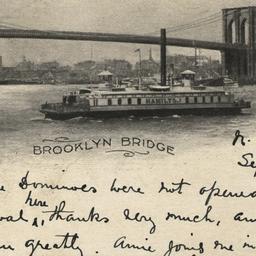 HAMILTON
BROOKLYN BRIDGE
N.
Sep
e Dominoes were not opened
val here, thanks very much, an
greatly. Anie joins me in